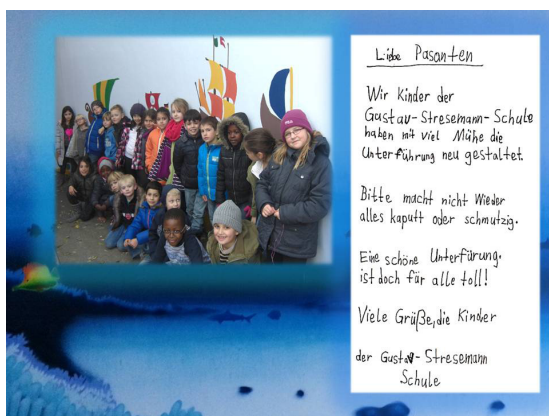 Liebe Pasanten
Wir Kinder der
Gustav-Stresemann-Schule
haben mit viel Mühe die
Unterführung neu gestaltet.
Bitte macht nicht Wieder
alles kaputt oder schmutzig.
Eine schöne Unterfürung.
ist doch für alle toll!
Viele Grüße, die Kinder
der Gustav-Stresemann
Schule